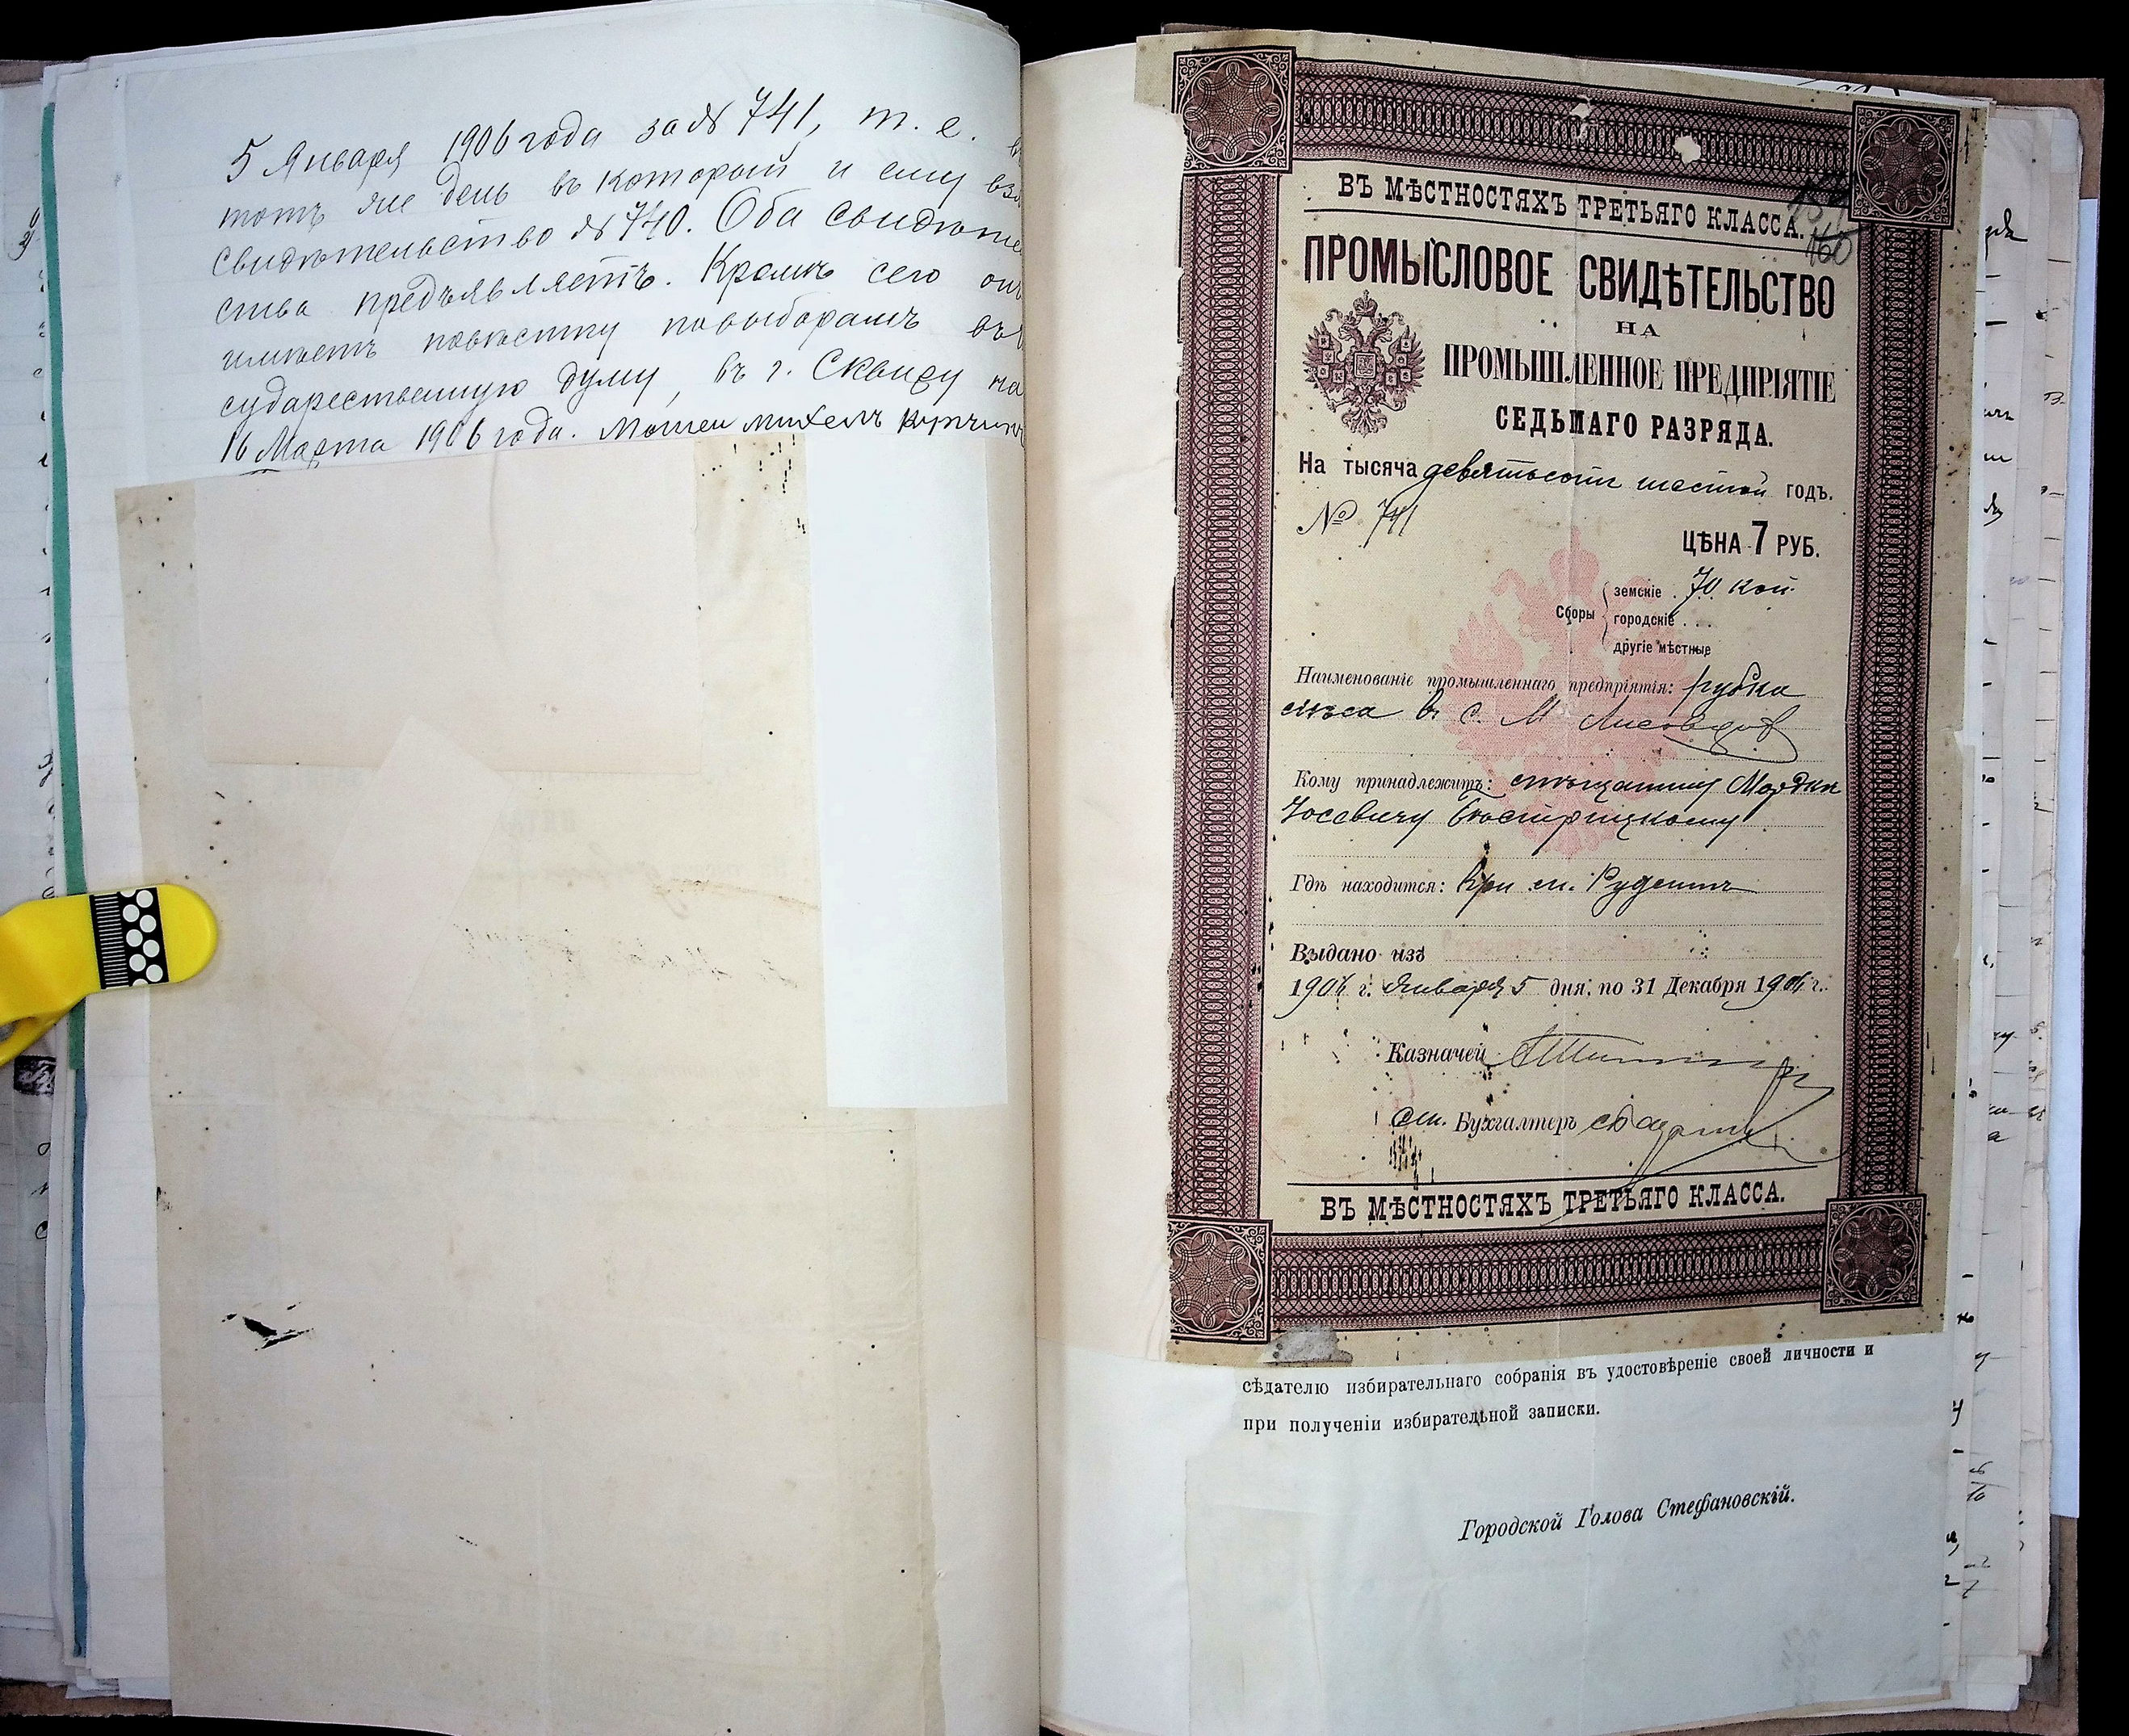 5 Января 1906 года за № 741, т. е. в
тотъ же день въ который и ему взя
свидѣтельство № 740. Оба свидѣтель
ства предъявляетъ. Кромѣ сего онъ
имѣетъ повѣстку по выборамъ въ
сударственную думу, въ г. Сквиру на
16 Марта 1906 года. Мошеи михелъ
ВЪ МѢСТНОСТЯХЪ ТРЕТЬЯГО КЛАССА.
160
ПРОМЫСЛОВОЕ СВИДѢТЕЛЬСТВО
НА
ПРОМЫШЛЕННОЕ ПРЕДПРІЯТІЕ
СЕДЬМАГО РАЗРЯДА.
На тысяча девятьсотъ шестой годъ.
№ 741
ЦѢНА 7 РУБ.
Сборы
земскіе . 70 коп.
городскіе . . .
другіе мѣстные
Наименованіе промышленнаго предпріятія: рубка
лѣса въ с. М
Кому принадлежитъ: мѣщанину Мордку
Іосевичу Быстрицкому
Гдѣ находится: При м. Ружинъ
Выдано изъ
1906 г. Января 5 дня, по 31 Декабря 1906 г.
Казначей
Ст. Бухгалтеръ
ВЪ МѢСТНОСТЯХЪ ТРЕТЬЯГО КЛАССА.
сѣдателю избирательнаго собранія въ удостовѣреніе своей личности и
при полученіи избирательной записки.
Городской Голова Стефановскій.